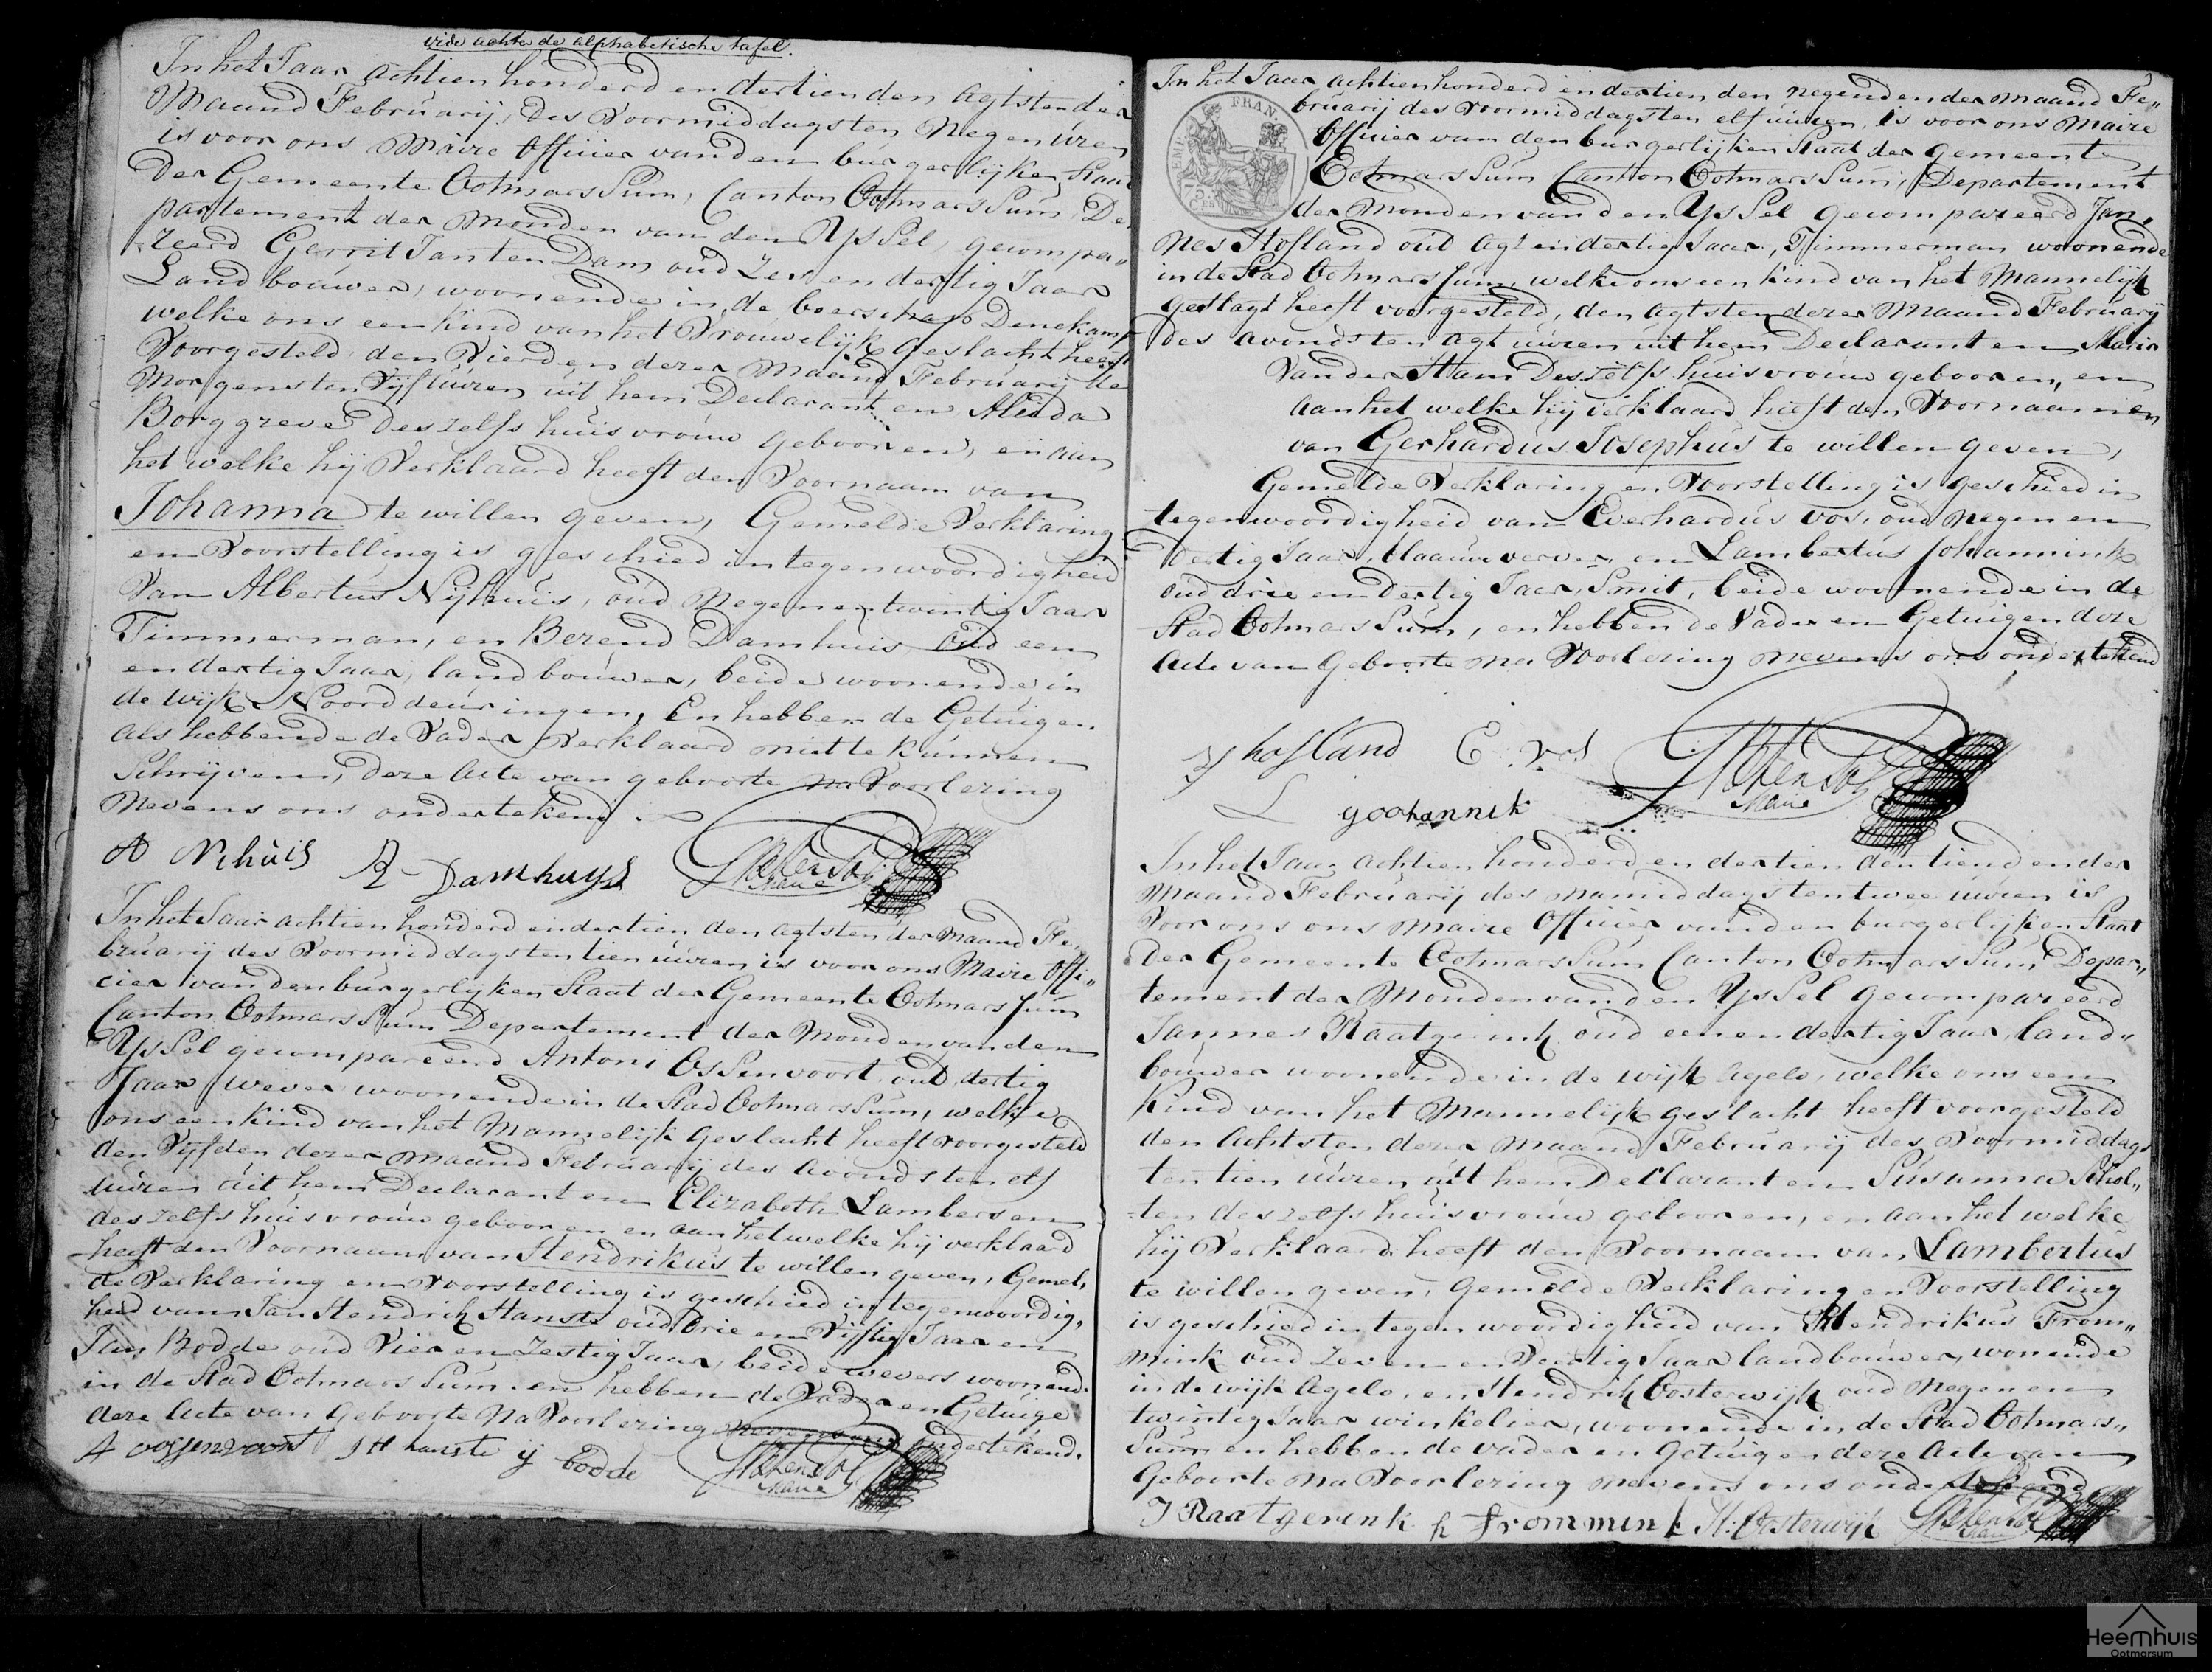 vide achter de alphabetische tafel.
In het Jaar achtien honderd en dertien den agtsten der
Maand Februarij, des Voormiddags ten Negen uren
is voor ons Maire Officier van den burgerlijken Staat
Der Gemeente Ootmarssum, Canton Ootmarssum, De-
partement der Monden van den Yssel, gecompa-
reerd Gerrit Jan ten Dam oud Zes en dertig Jaar
Landbouwer, woonende in de boerschap Denekamp
welke ons een kind van het Vrouwelijk geslacht heeft
Voorgesteld, den Vierden dezer Maand Februarij des
Morgens ten Vijf uren uit hem Declarant en Aleida
Borggreve deszelfs huisvrouw gebooren, en aan
het welke hij Verklaard heeft den Voornaam van
Johanna te willen geven, Gemelde Verklaring
en Voorstelling is geschied in tegenwoordigheid
Van Albertus Nijhuis, oud Negenentwintig Jaar
Timmerman, en Berend Damhuis oud een
en dertig Jaar, landbouwer, beide woonende in
de wijk Noorddeuringen, En hebben de Getuigen.
als hebbende de Vader Verklaard niet te kunnen
Schrijven, deze Acte van geboorte na Voorlezing
Nevens ons ondertekend
A Nehuis B Damhuys
Maire
In het Jaar achtien honderd en dertien den agtsten der Maand Fe-
bruarij des Voormiddags ten tien uuren is voor ons Maire Offi-
cier van den burgerlijken Staat der Gemeente Ootmarssum
Canton Ootmarssum Departement der Monden van den
Yssel gecompareerd Antoni Ossenvoort oud dertig
Jaar wever woonende in de Stad Ootmarssum, welke
ons een kind van het Mannelijk Geslacht heeft voorgesteld
den Vijfden dezer maand Februarij des Avonds ten elf
uuren uit hem Declarant en Elizabeth Lambers en
deszelfs huisvrouw gebooren en aan het welke hij verklaard
heeft den Voornaam van Hendrikus te willen geven, Gemel,
de Verklaring en Voorstelling is geschied in tegenwoordig,
heid van Jan Hendrik Hanste oud Drie en Vijftig Jaar en
Jan Bodde oud Vier en Zestig Jaar, beide wevers woonend
in de Stad Ootmarssum. en hebben de Vader en Getuige
deze Acte van Geboorte Na Voorlezing nevens ons ondertekend.
A ossenvoort J H hanste ij bodde
Maire
In het Jaar achtienhonderd en dertien den negenden der maand Fe,,
bruarij des Voormiddags ten elf uuren, is voor ons Maire
EMP. FRAN.
75
Officier van den burgerlijken Staat der Gemeente
Ootmarssum Canton Ootmarssum, Departement
der Monden van den Yssel gecompareerd Jan,
nes Hofland oud agt en dertig Jaar, Timmerman woonende
in de Stad Ootmarssum, welke ons een kind van het Mannelijk
geslagt heeft voorgesteld, den agtsten dezer Maand Februarij
des avonds ten agt uuren uit hem Declarant en Maria
Van der Ham Deszelfs huisvrouw gebooren, en
aan het welke hij verklaard heeft den Voornaamen
van Gerhardus Josephus te willen geven,
Gemelde Verklaring en Voorstelling is geschied in
tegenwoordigheid van Everhardus Vos, oud Negen en
Dertig Jaar, blaauwverver, en Lambertus Johannink
oud drie en dertig Jaar, Smit, beide woonende in de
Stad Ootmarssum, en hebben de Vader en Getuigen deze
Acte van Geboorte na Voorlezing nevens ons ondertekend
J hofland E. Vos
L goohannik
Maire
In het Jaar achtien honderd en dertien den tienden der
Maand Februarij des namiddags ten twee uuren is
Voor ons ons Maire Officier van den burgerlijken Staat
Der Gemeente Ootmarssum Canton Ootmarssum Depar,,
tement der Monden van den Yssel gecompareerd
Jannes Raatgerink oud een en dertig Jaar, land,,
bouwer woonende in de wijk Agelo, welke ons een
Kind van het Mannelijk geslacht heeft voorgesteld
den Achtsten dezer Maand Februarij des Voormiddags
ten tien uuren uit hem Declarant en Susanna Schol,,
ten deszelfs huisvrouw gebooren, en aan het welke
hij Verklaard heeft den Voornaam van Lambertus
te willen geven, Gemelde Verklaring en Voorstelling
is geschied in tegenwoordigheid van Hendrikus From,,
mink oud Zeven en Veertig Jaar landbouwer, wonende
in de wijk Agelo, en Hendrik Oosterwijk oud Negen en
twintig Jaar winkelier, woonende in de Stad Ootmars,,
sum en hebben de vader en Getuigen deze Acte van
Geboorte na Voorlezing nevens ons ondertekend
J Raatgerink h frommink H: Oosterwijk
Maire
Heemhuis
Ootmarsum